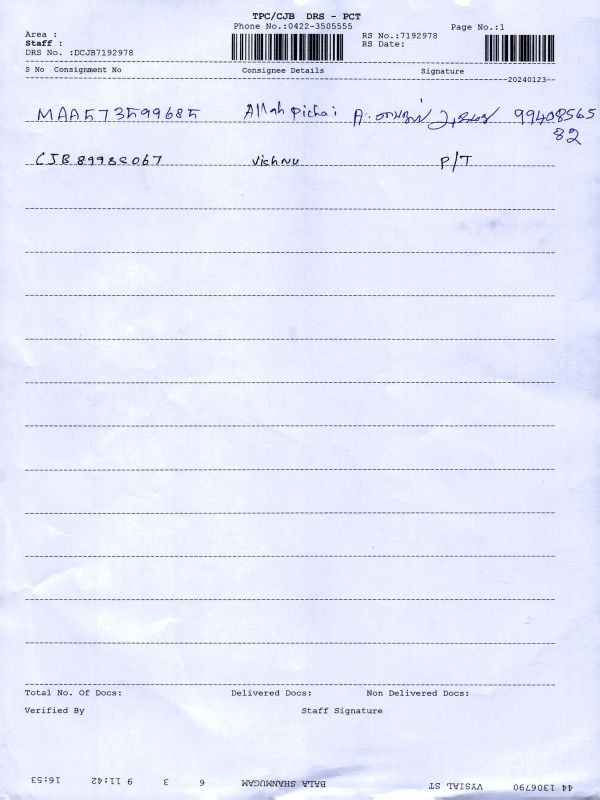 TPC/CJB DRS - PCT
Phone No.:0422-3505555
Page No.:1
Area :
Staff :
DRS No. :DCJB7192978
RS No.:7192978
RS Date:
S No Consignment No Consignee Details Signature
20240123
MAA573599685 Allah pichai 99408565
82
Vishnu P/T
Total No. Of Docs: Delivered Docs: Non Delivered Docs:
Verified By Staff Signature
44 1306790 VYSIAL ST BALA SHANMUGAM 6 3 9 11:42 16:53